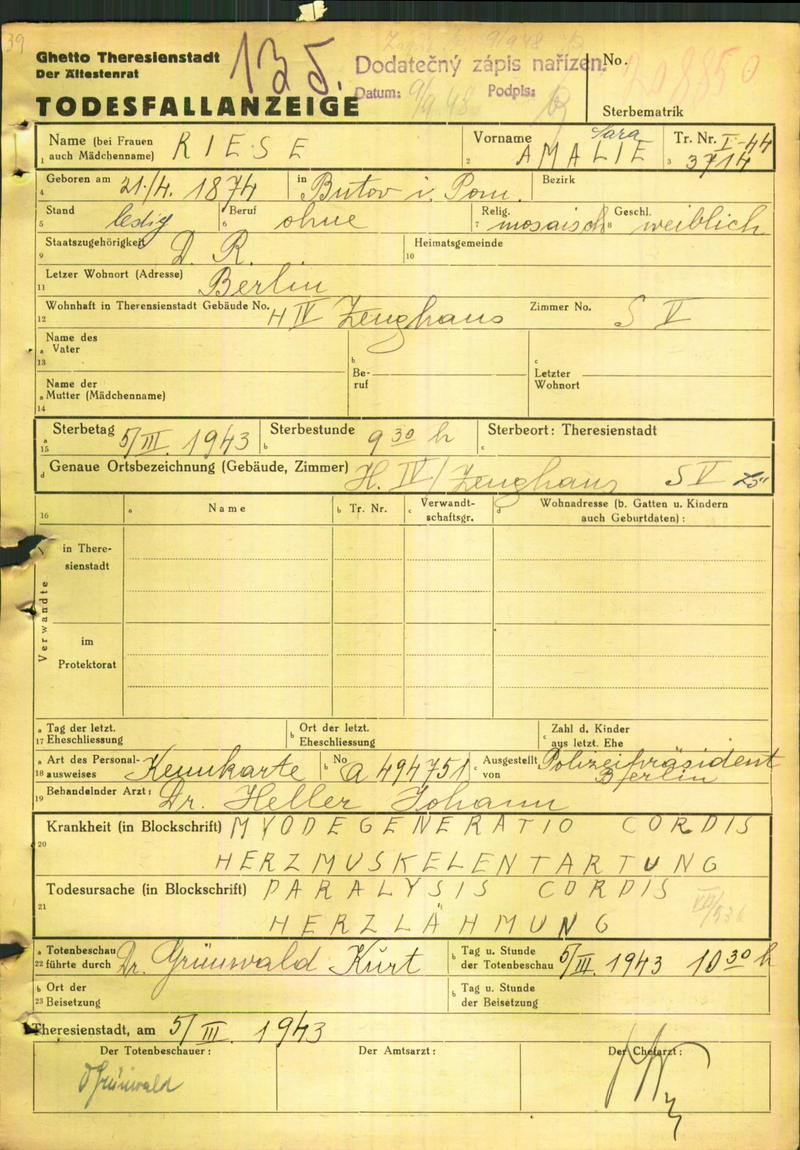 39
Ghetto Theresienstadt
Der Ältestenrat
TODESFALLANZEIGE
135.
Dodatečný zápis nařízen.
Datum: 9/9 48 Podpis:
No.
20885 0
Sterbematrik
Name (bei Frauen auch Mädchenname) RIESE
1
Vorname Sara AMALIE
2
Tr. Nr. I-44
3 3714
4 Geboren am 21./4. 1874 in Butov i. Pom. Bezirk
5 Stand ledig 6 Beruf ohne 7 Relig. mosaisch 8 Geschl. weiblich
9 Staatszugehörigkeit D. R. 10 Heimatsgemeinde
11 Letzer Wohnort (Adresse) Berlin
12 Wohnhaft in Theresienstadt Gebäude No. H IV Zeughaus Zimmer No. S V
13 a Name des Vater
b Beruf
c Letzter Wohnort
14 a Name der Mutter (Mädchenname)
15 a Sterbetag 5/III. 1943 b Sterbestunde 9 30 h c Sterbeort: Theresienstadt
d Genaue Ortsbezeichnung (Gebäude, Zimmer) H. IV/ Zeughaus S V
16 a Name b Tr. Nr. c Verwandtschaftsgr. d Wohnadresse (b. Gatten u. Kindern auch Geburtdaten):
Verwandte
in Theresienstadt
im Protektorat
17 a Tag der letzt. Eheschliessung b Ort der letzt. Eheschliessung c Zahl d. Kinder aus letzt. Ehe
18 a Art des Personalausweises Kennkarte b No a 494751 c Ausgestellt von Polizeipräsident Berlin
19 Behandelnder Arzt: Dr. Heller Johann
20 Krankheit (in Blockschrift) MYODEGENERATIO CORDIS
HERZMUSKELENTARTUNG
21 Todesursache (in Blockschrift) PARALYSIS CORDIS
HERZLÄHMUNG
22 a Totenbeschau führte durch Dr. Grünwald Kurt b Tag u. Stunde der Totenbeschau 5/III. 1943 10 30 h
23 b Ort der Beisetzung b Tag u. Stunde der Beisetzung
Theresienstadt, am 5/III. 1943
Der Totenbeschauer: Der Amtsarzt: Der Chefarzt:
DGrünwald